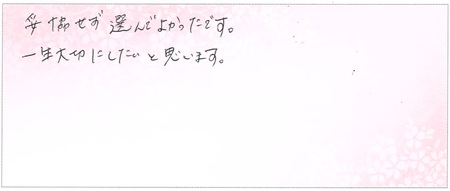 妥協せず選んでよかったです。
一生大切にしたいと思います。